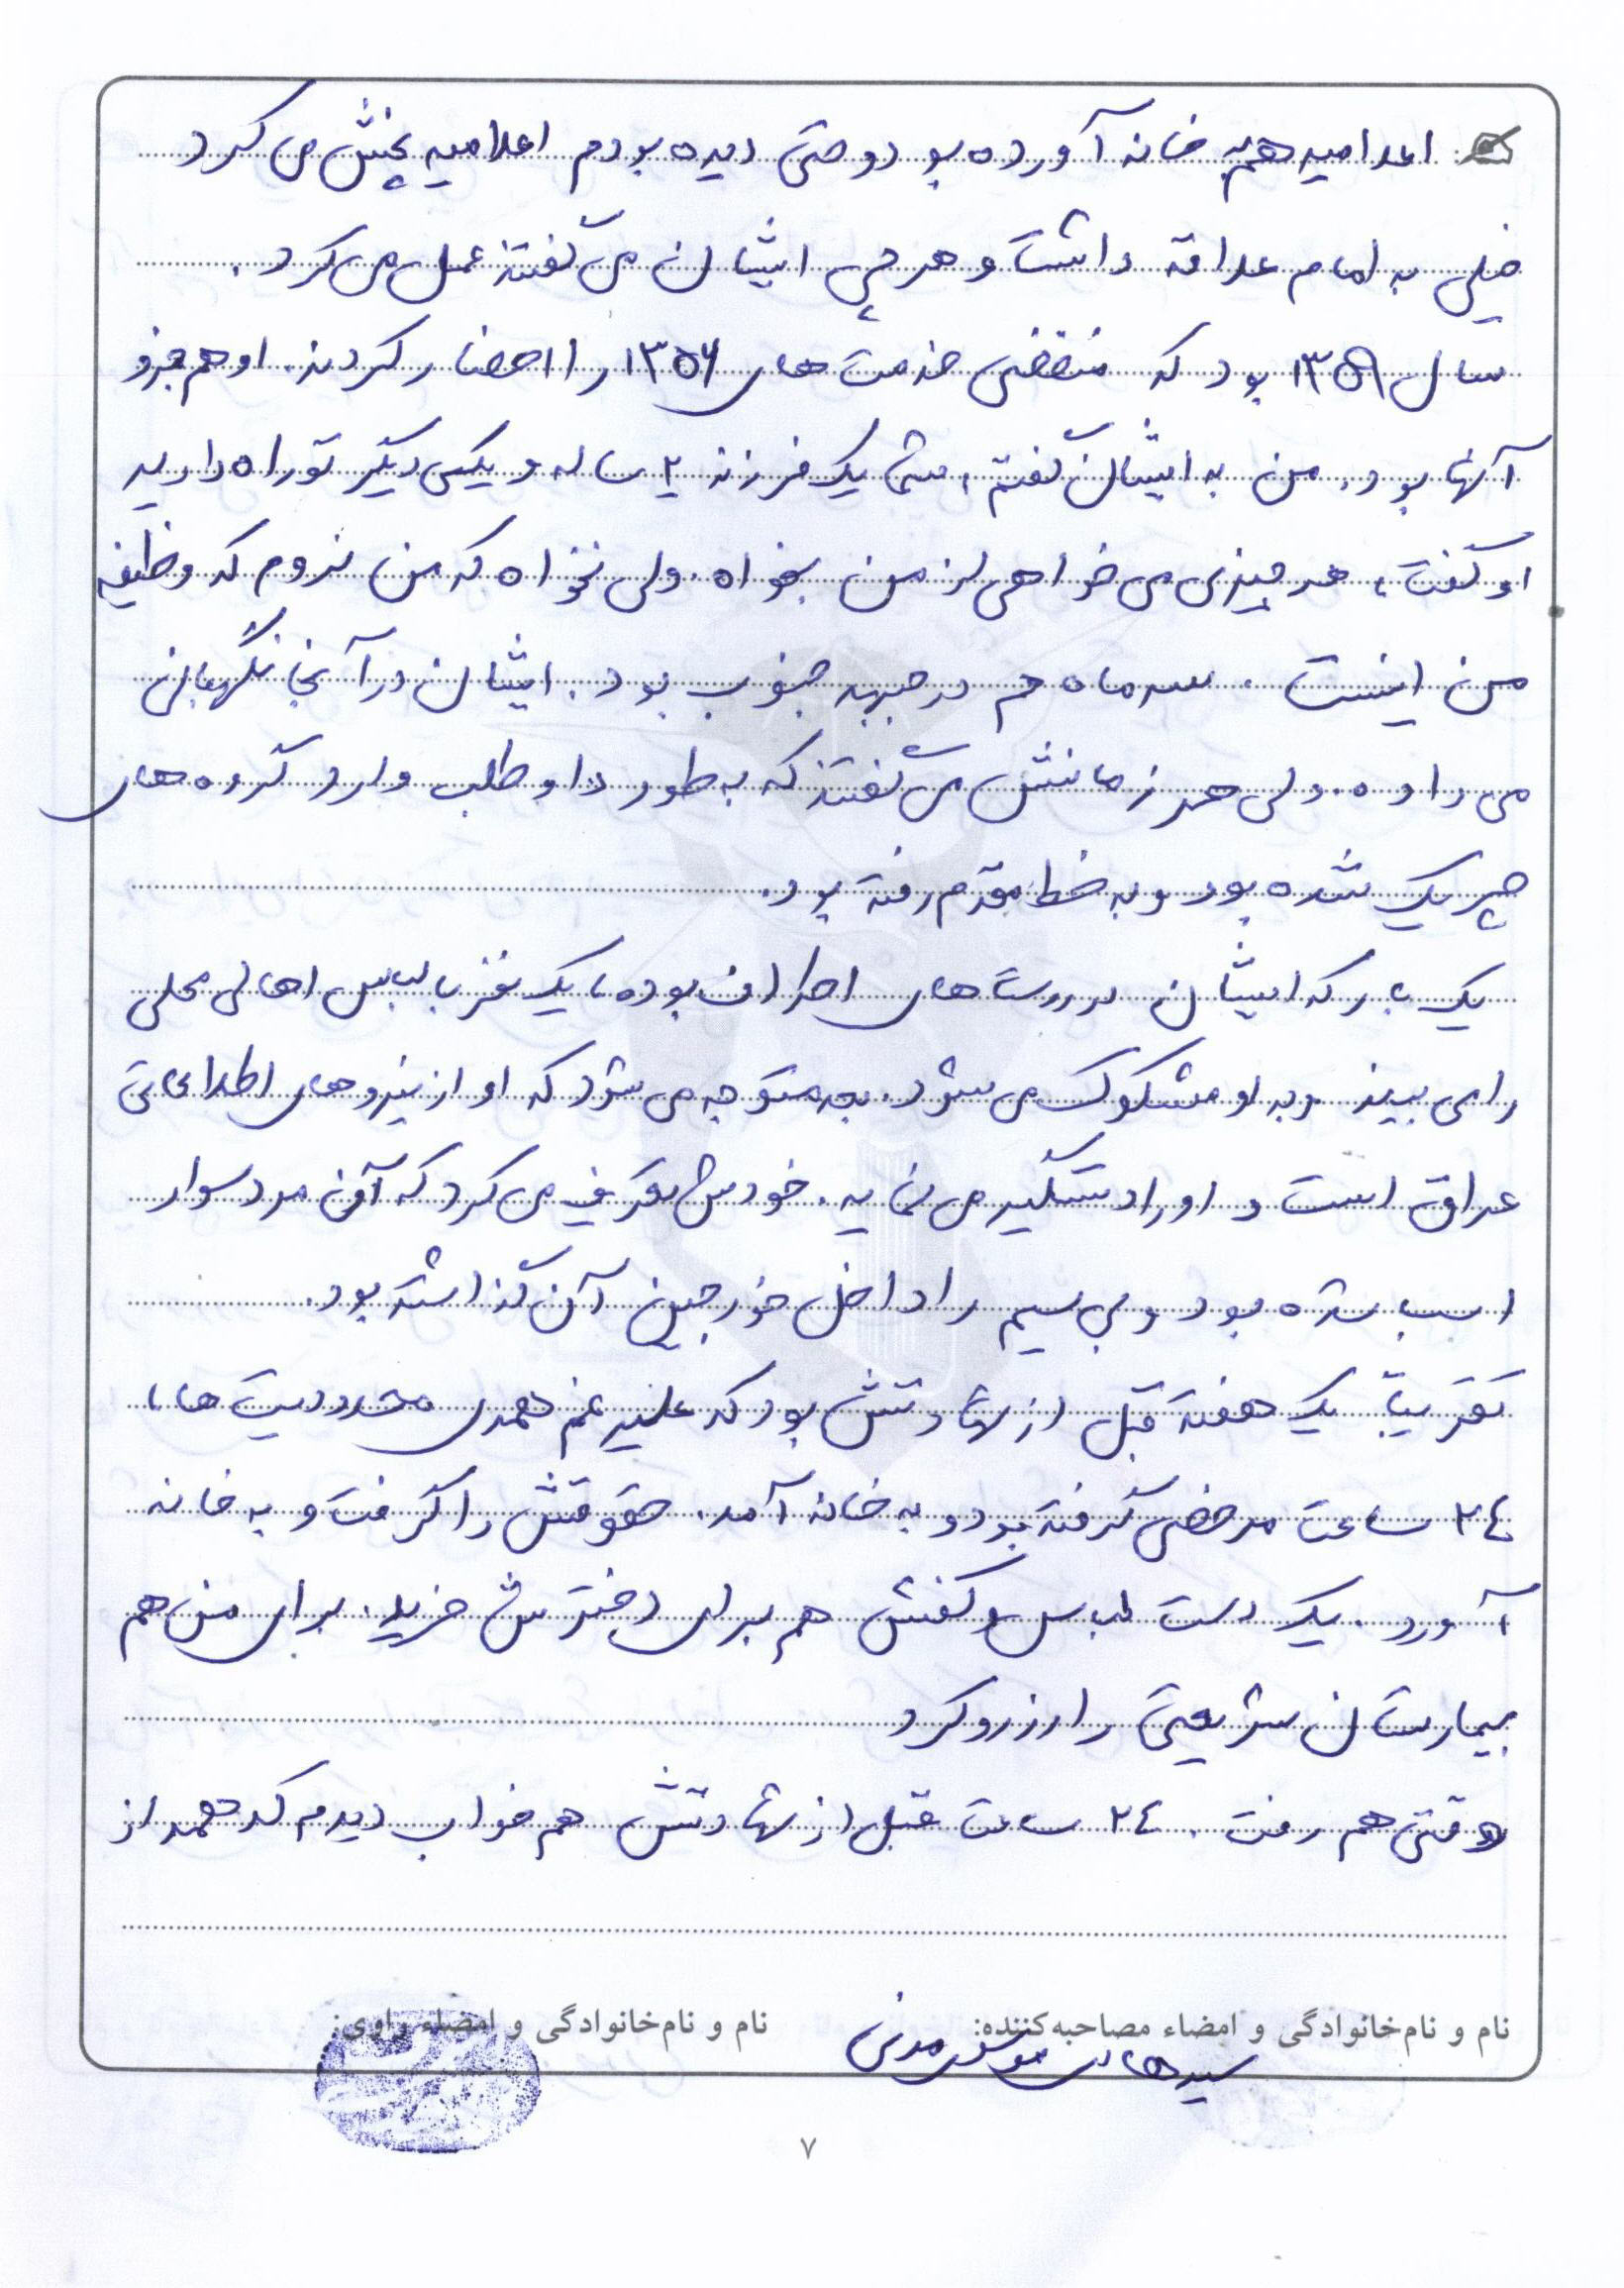 اعلامیه هم به خانه آورده بود و حتی دیده بودم اعلامیه پخش می کرد
خیلی به امام علاقه داشت و هر چی ایشان می گفتند عمل می کرد.
سال ۱۳۵۹ بود که منقضی خدمت های ۱۳۵۶ را احضار کردند. او هم جزو
آنها بود. من به ایشان گفتم، شما یک فرزند ۲ ساله و یکی دیگر تو راه دارید
او گفت، هر چیزی می خواهی از من بخواه. ولی نخواه که من نروم که وظیفه
من اینست. سه ماه هم در جبهه جنوب بود. ایشان در آنجا نگهبانی
می داده. ولی همرزمانش می گفتند که به طور داوطلب وارد گروه های
چریک شده بود و به خط مقدم رفته بود.
یک بار که ایشان در روستاهای اطراف بوده، یک نفر با لباس اهالی محلی
را می بیند و به او مشکوک می شود. بعد متوجه می شود که او از نیروهای اطلاعاتی
عراق است و او را دستگیر می نماید. خودش تعریف می کرد که آن مرد سوار
اسب شده بود و بی سیم را داخل خورجین آن گذاشته بود.
تقریباً یک هفته قبل از شهادتش بود که علیرغم همه ی محدودیت ها،
۲٤ ساعت مرخصی گرفته بود و به خانه آمد. حقوقش را گرفت و به خانه
آورد. یک دست لباس و کفش هم برای دخترش خرید. برای من هم
بیمارستان شریعتی را رزرو کرد
وقتی هم رفت. ۲٤ ساعت قبل از شهادتش هم خواب دیدم که همه از
نام و نام‌خانوادگی و امضاء مصاحبه‌کننده: نام و نام‌خانوادگی و امضاء راوی:
سید هادی موسوی مدنی
۷